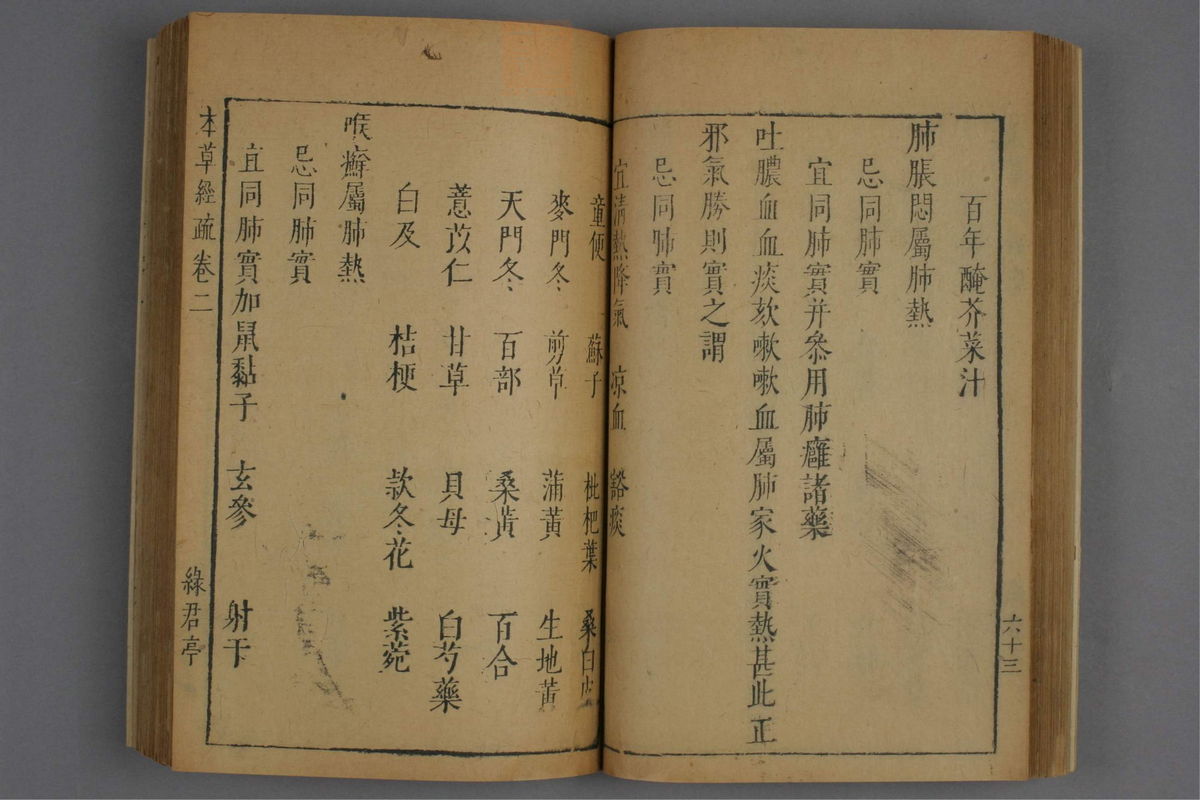 百年醃芥菜汁
肺脹悶屬肺熱
忌同肺實
宜同肺實并叅用肺癰諸藥
吐膿血血痰欬嗽嗽血屬肺家火實熱甚此正
邪氣勝則實之謂
忌同肺實
宜清熱降氣 凉血 豁痰
六十三
童便 蘇子 枇杷葉 桑白皮
麥門冬 剪草 蒲黃 生地黃
天門冬 百部 桑黃 百合
薏苡仁 甘草 貝母 白芍藥
白及 桔梗 款冬花 紫菀
喉癬屬肺熱
忌同肺實
宜同肺實加鼠黏子 玄參 射干
本草經疏卷二 綠君亭